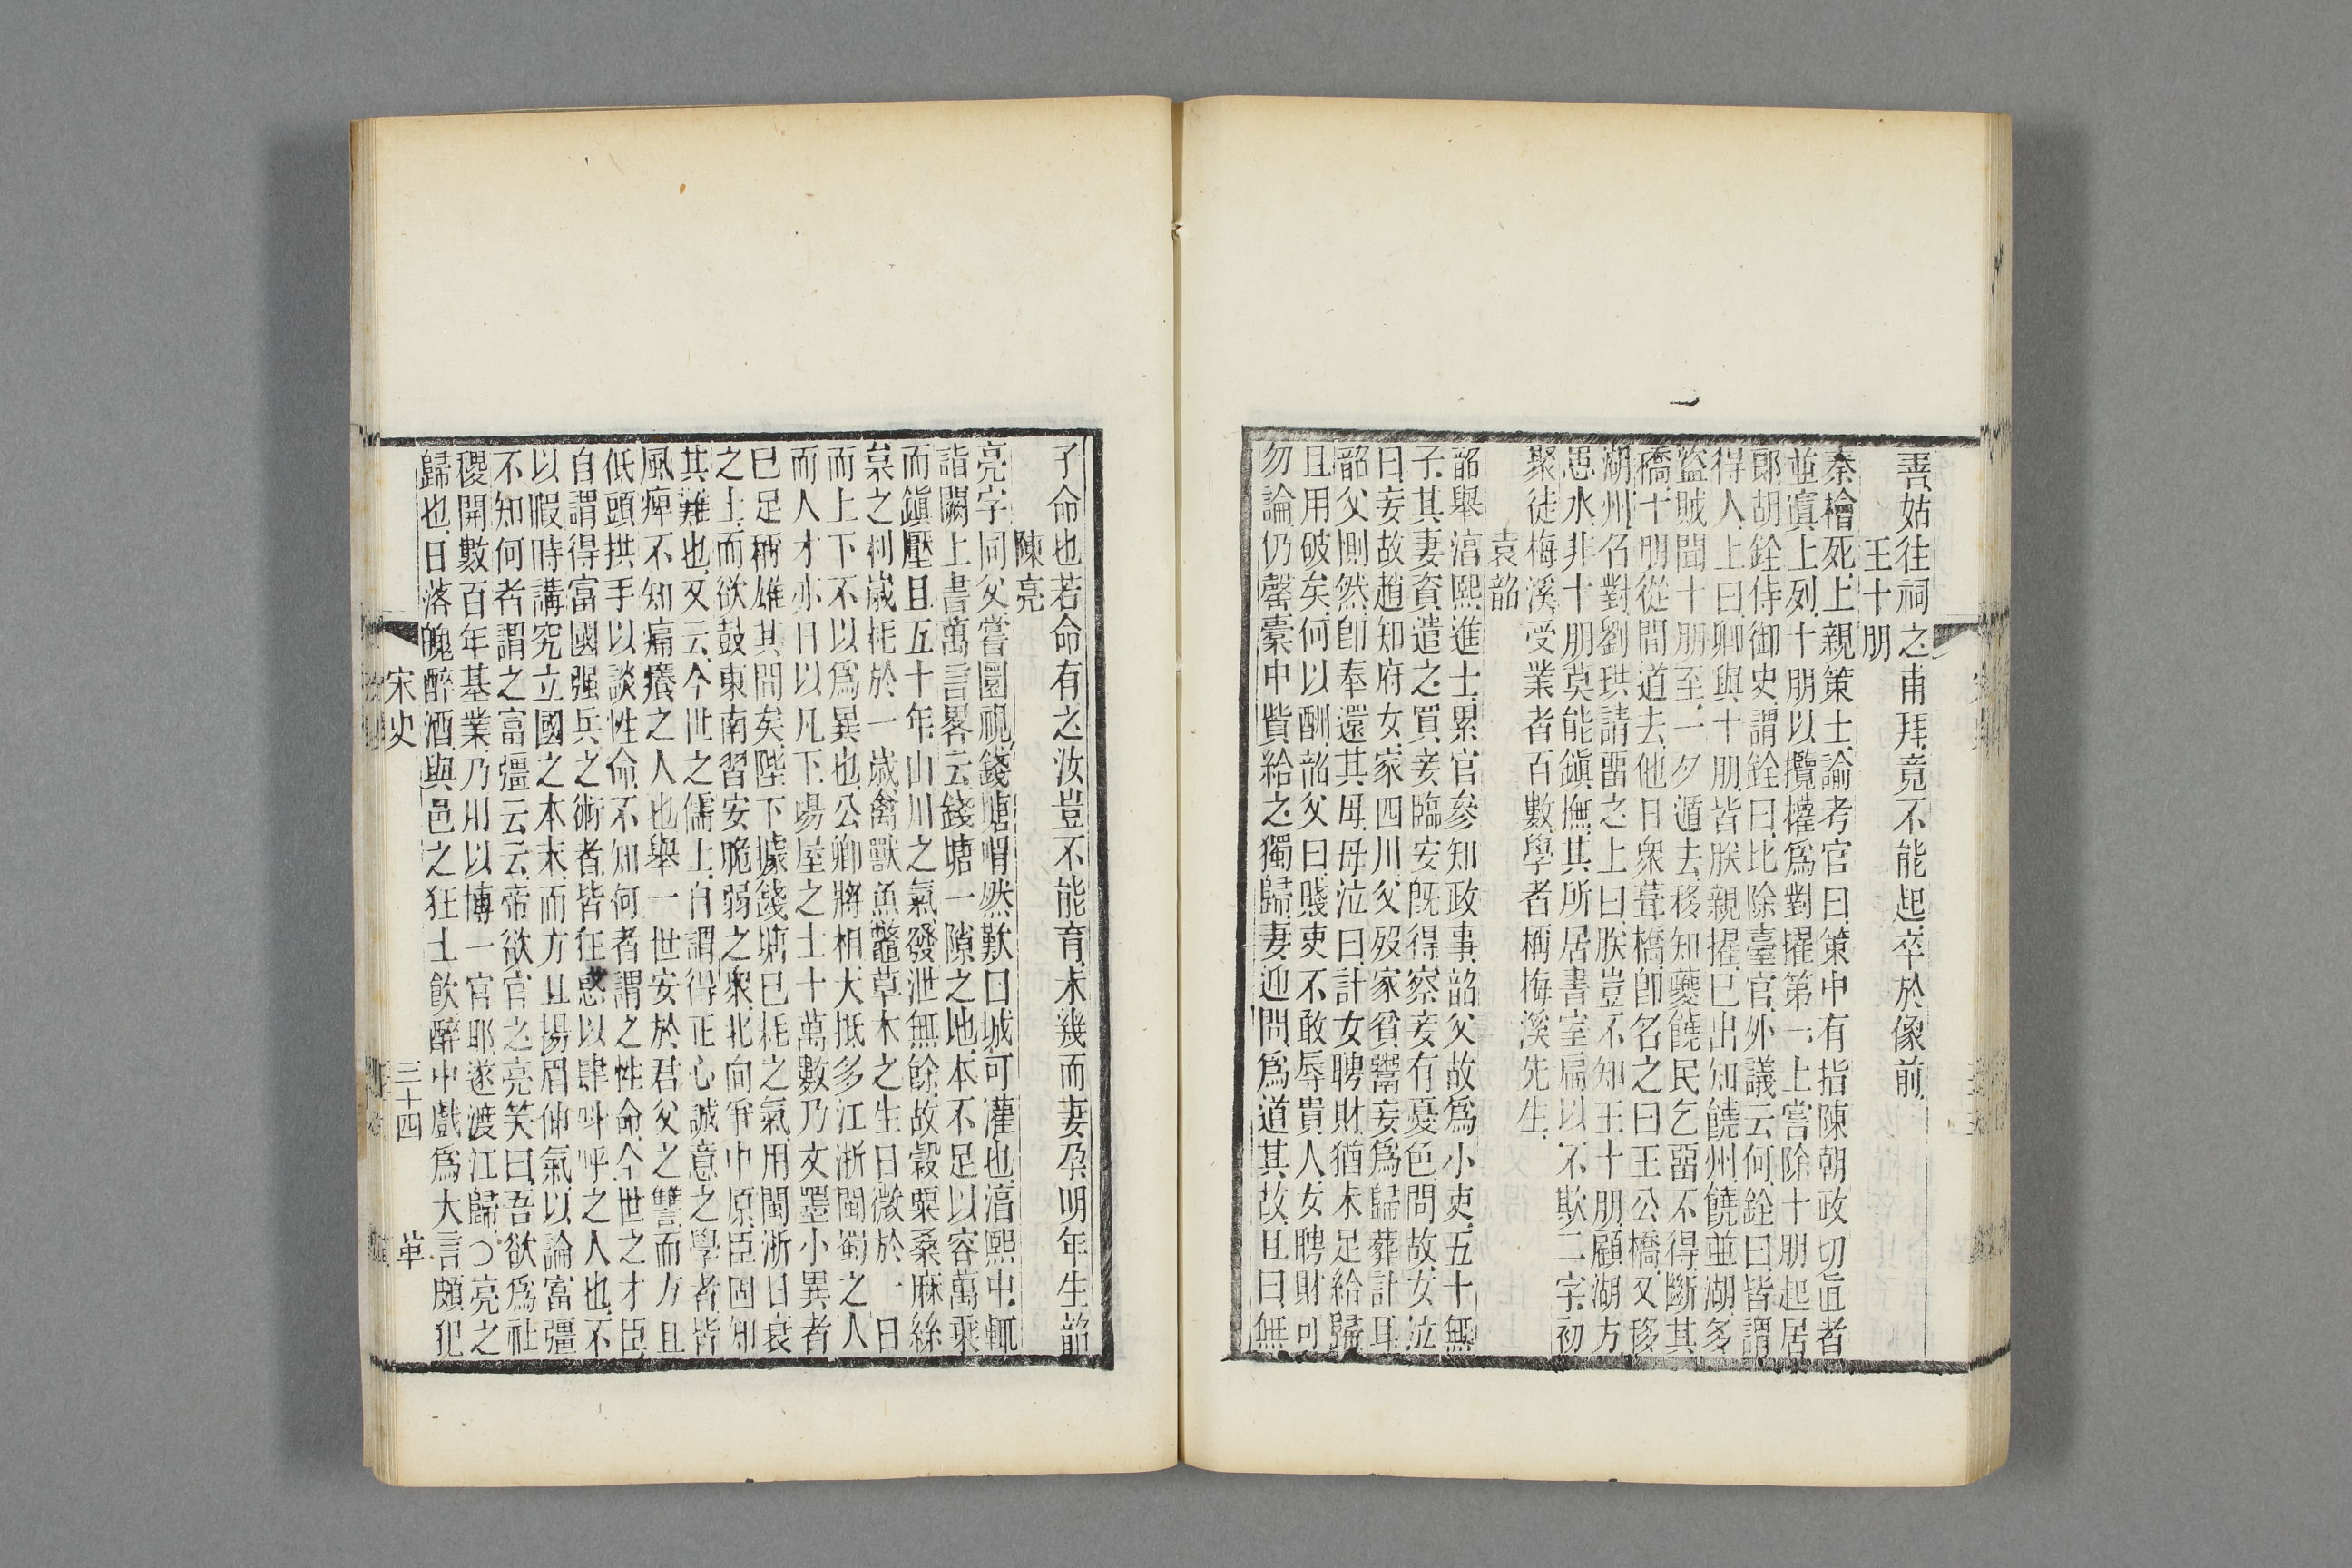 善姑往祠之甫拜竟不能起卒於像前
王十朋
秦檜死上親策士諭考官曰策中有指陳朝政切直者
並寘上列十朋以攬權爲對擢第一上嘗除十朋起居
郎胡銓侍御史謂銓曰比除臺官外議云何銓曰皆謂
得人上曰卿與十朋皆朕親擢巳出知饒州饒並湖多
盜賊聞十朋至一夕遁去移知夔饒民乞畱不得斷其
橋十朋從間道去他日衆葺橋卽名之曰王公橋又移
湖州召對劉珙請畱之上曰朕豈不知王十朋顧湖方
惡水非十朋莫能鎭撫其所居書室扁以不欺二字初
聚徒梅溪受業者百數學者稱梅溪先生
袁韶
韶舉湻熙進士累官參知政事韶父故爲小吏五十無
子其妻資遣之買妾臨安旣得察妾有憂色問故女泣
曰妾故趙知府女家四川父歿家貧鬻妾爲歸葬計耳
韶父惻然卽奉還其母母泣曰計女聘財猶未足給歸
且用破矣何以酬韶父曰賤吏不敢辱貴人女聘財可
勿論仍罄橐中貲給之獨歸妻迎問爲道其故且曰無
子命也若命有之汝豈不能育未幾而妻孕明年生韶
陳亮
亮字同父嘗圜視錢塘喟然歎曰城可灌也湻熙中輒
詣闕上書萬言畧云錢塘一隙之地本不足以容萬乘
而鎭壓且五十年山川之氣發泄無餘故穀粟桑麻絲
枲之利歲耗於一歲禽獸魚鼈草木之生日微於一日
而上下不以爲異也公卿將相大抵多江浙閩蜀之人
而人才亦日以凡下場屋之士十萬數乃文墨小異者
巳足稱雄其間矣陛下據錢塘巳耗之氣用閩浙日衰
之士而欲鼓東南習安脆弱之衆北向爭中原臣固知
其難也又云今世之儒士自謂得正心誠意之學者皆
風痺不知痛癢之人也舉一世安於君父之讐而方且
低頭拱手以談性命不知何者謂之性命今世之才臣
自謂得富國强兵之術者皆狂惑以肆叫呼之人也不
以暇時講究立國之本末而方且揚眉伸氣以論富彊
不知何者謂之富彊云云帝欲官之亮笑曰吾欲爲社
稷開數百年基業乃用以博一官耶遂渡江歸○亮之
歸也日落魄醉酒與邑之狂士飮醉中戲爲大言頗犯
宋史 三十四